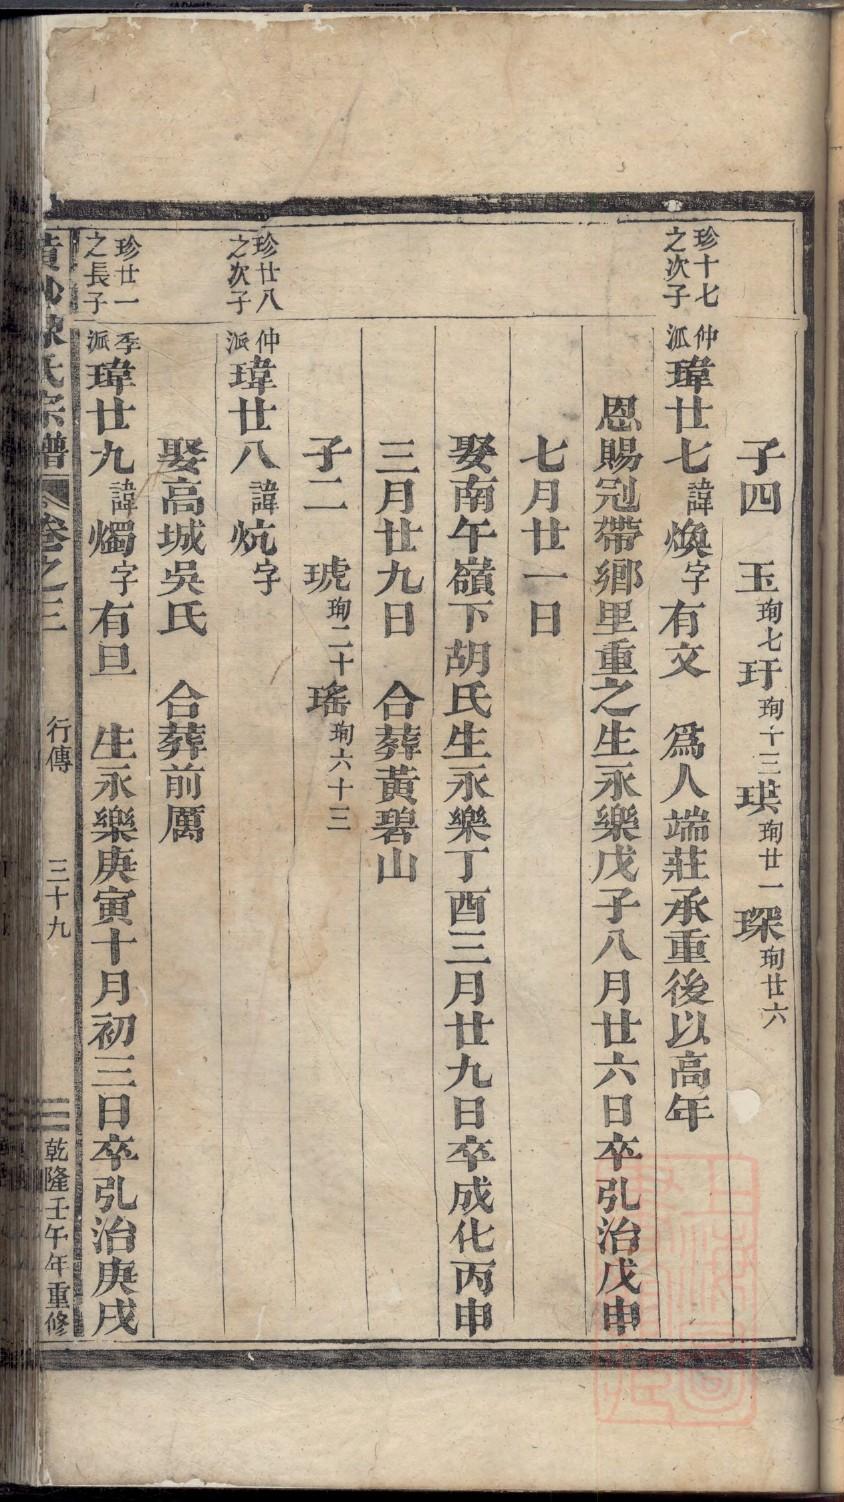 子四　玉珣七玗珣十三珙珣廿一琛珣廿六
珍十七之次子
仲派瑋廿七諱煥字有文　爲人端莊承重後以高年
恩賜冠帶鄉里重之生永樂戊子八月廿六日卒弘治戊申
七月廿一日
娶南午嶺下胡氏生永樂丁酉三月廿九日卒成化丙申
三月廿九日　合葬黃碧山
子二　琥珣二十瑤珣六十三
珍廿八之次子
仲派瑋廿八諱炕字
娶高城吳氏　合葬前厲
珍廿一之長子
季派瑋廿九諱燭字有旦　生永樂庚寅十月初三日卒弘治庚戌
氏宗譜　卷之三　行傳　三十九　乾隆壬午年重修